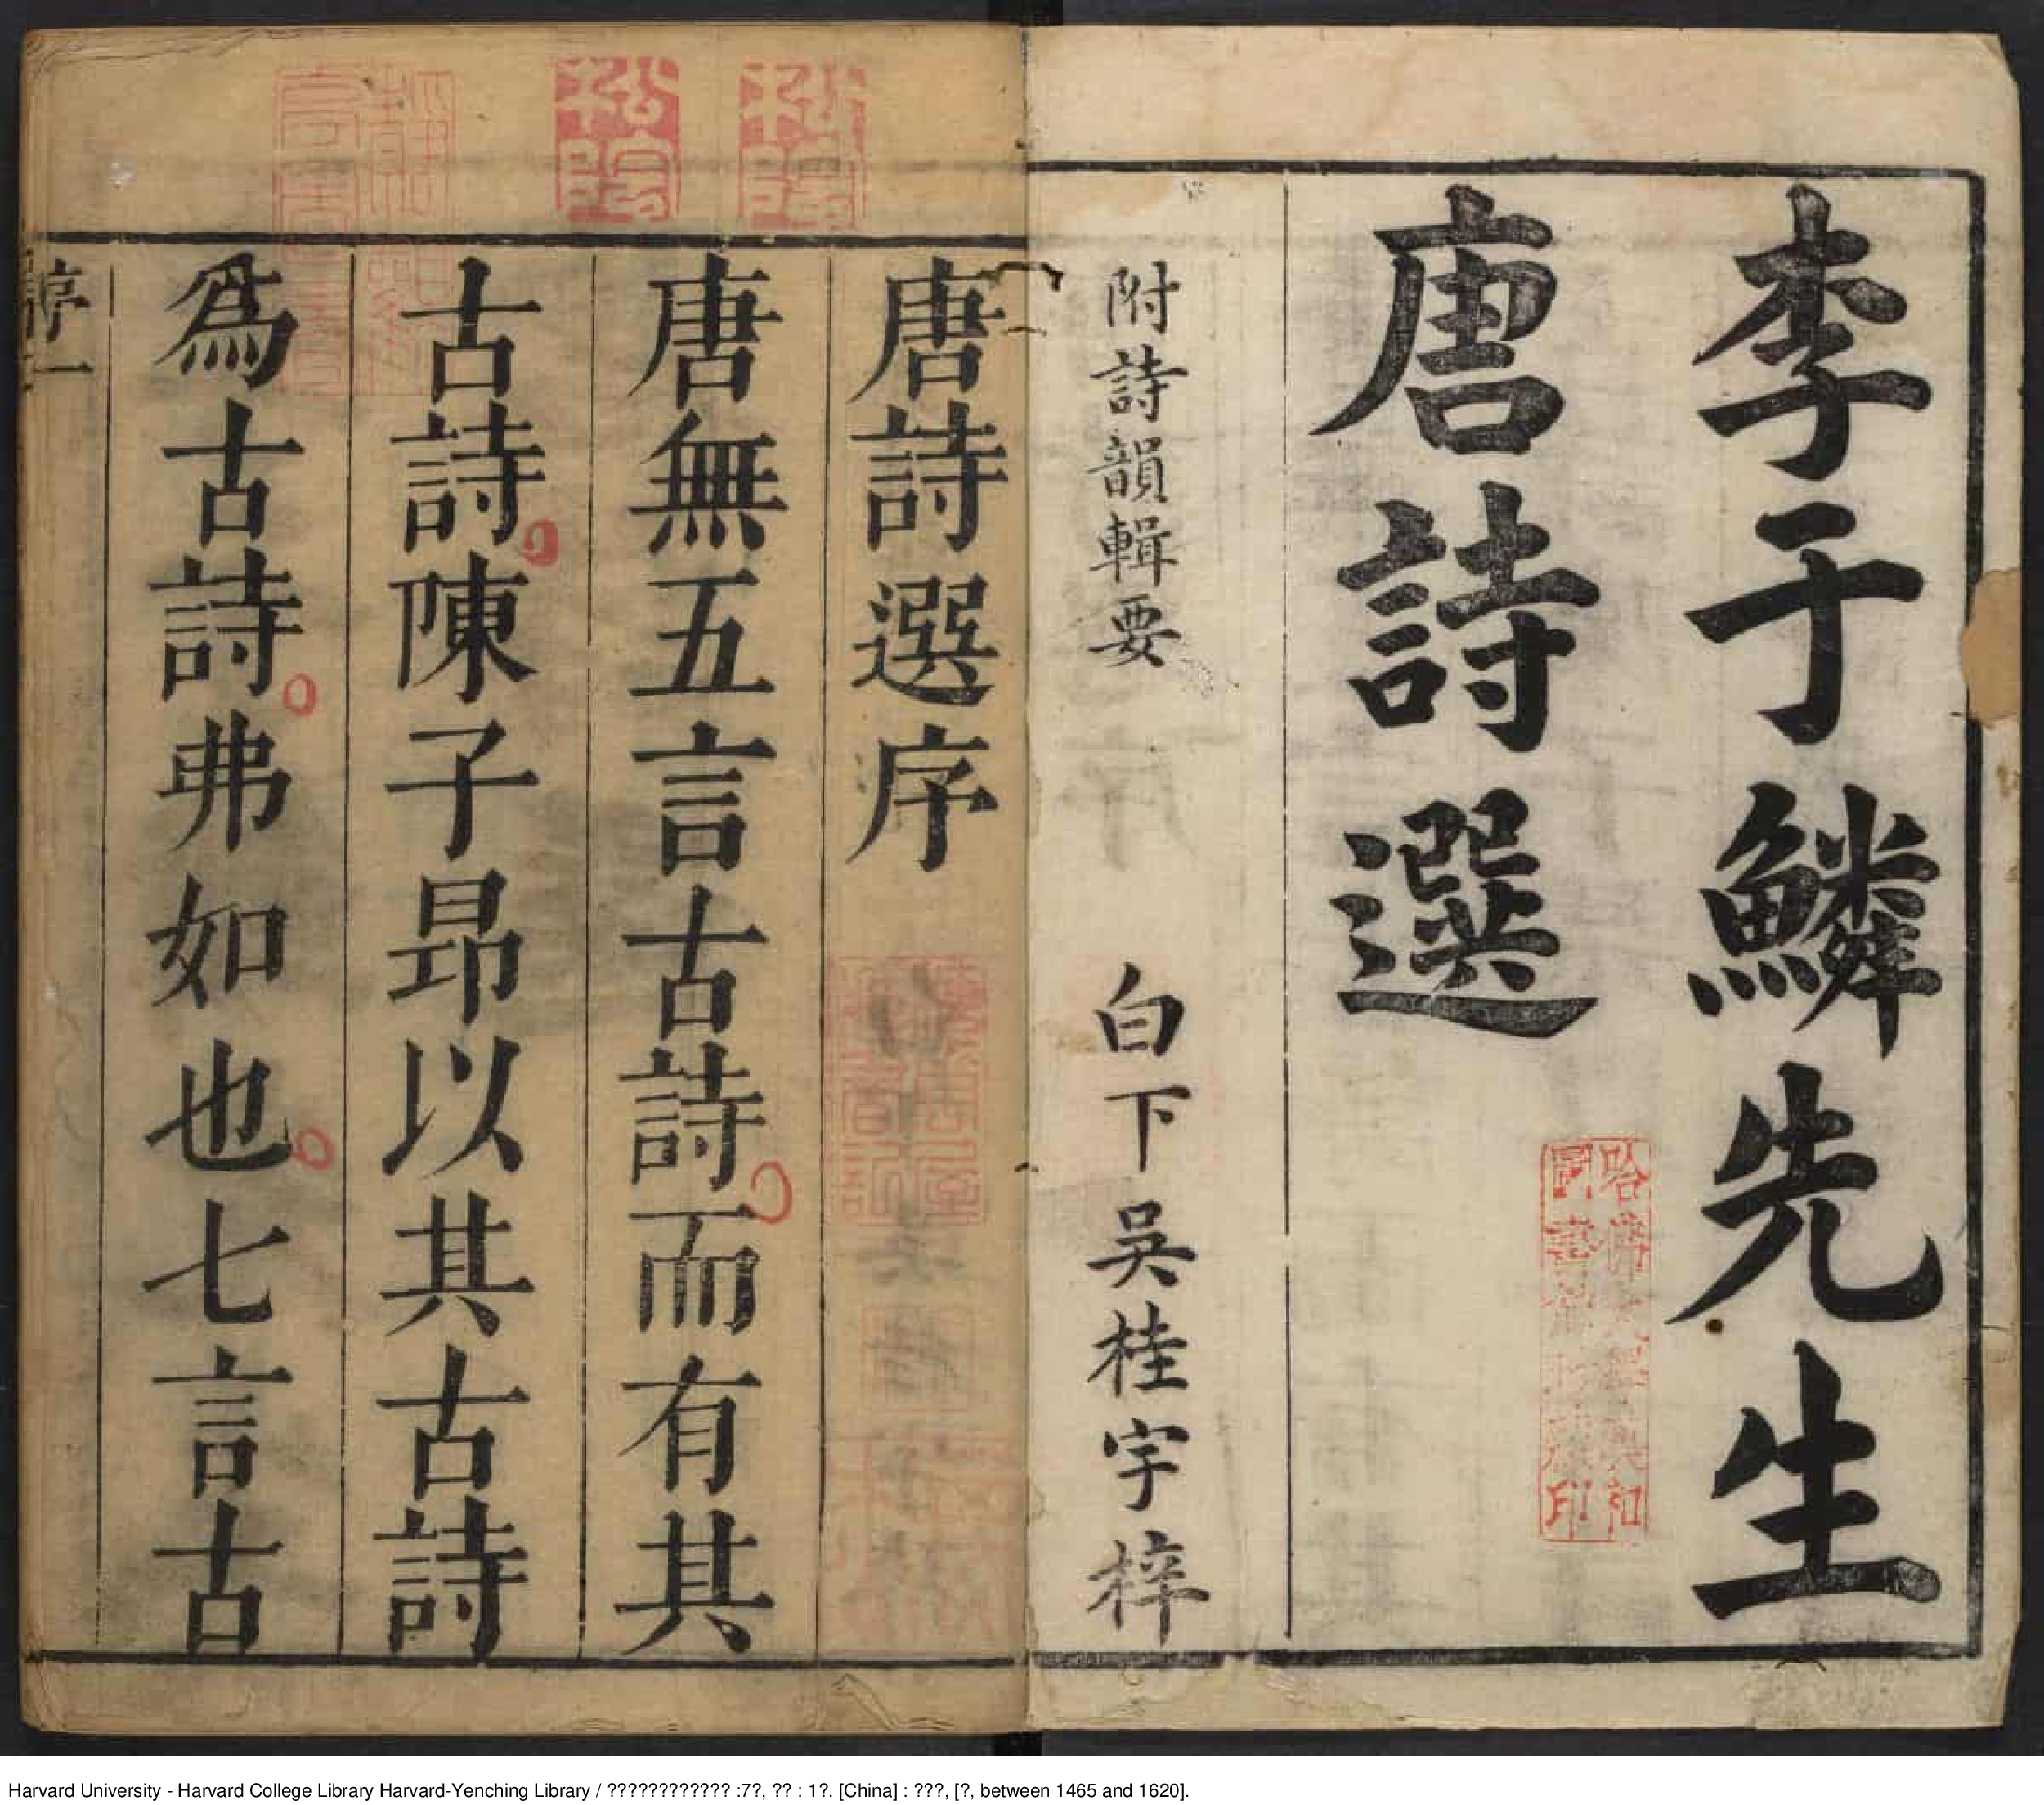 李于鱗先生
唐詩選
附詩韻輯要 白下吳桂宇梓
唐詩選序
唐無五言古詩而有其
古詩陳子昂以其古詩
爲古詩弗如也七言古
序 一
松陰
松陰
Harvard University - Harvard College Library Harvard-Yenching Library / ???????????? :7?, ?? : 1?. [China] : ???, [?, between 1465 and 1620].